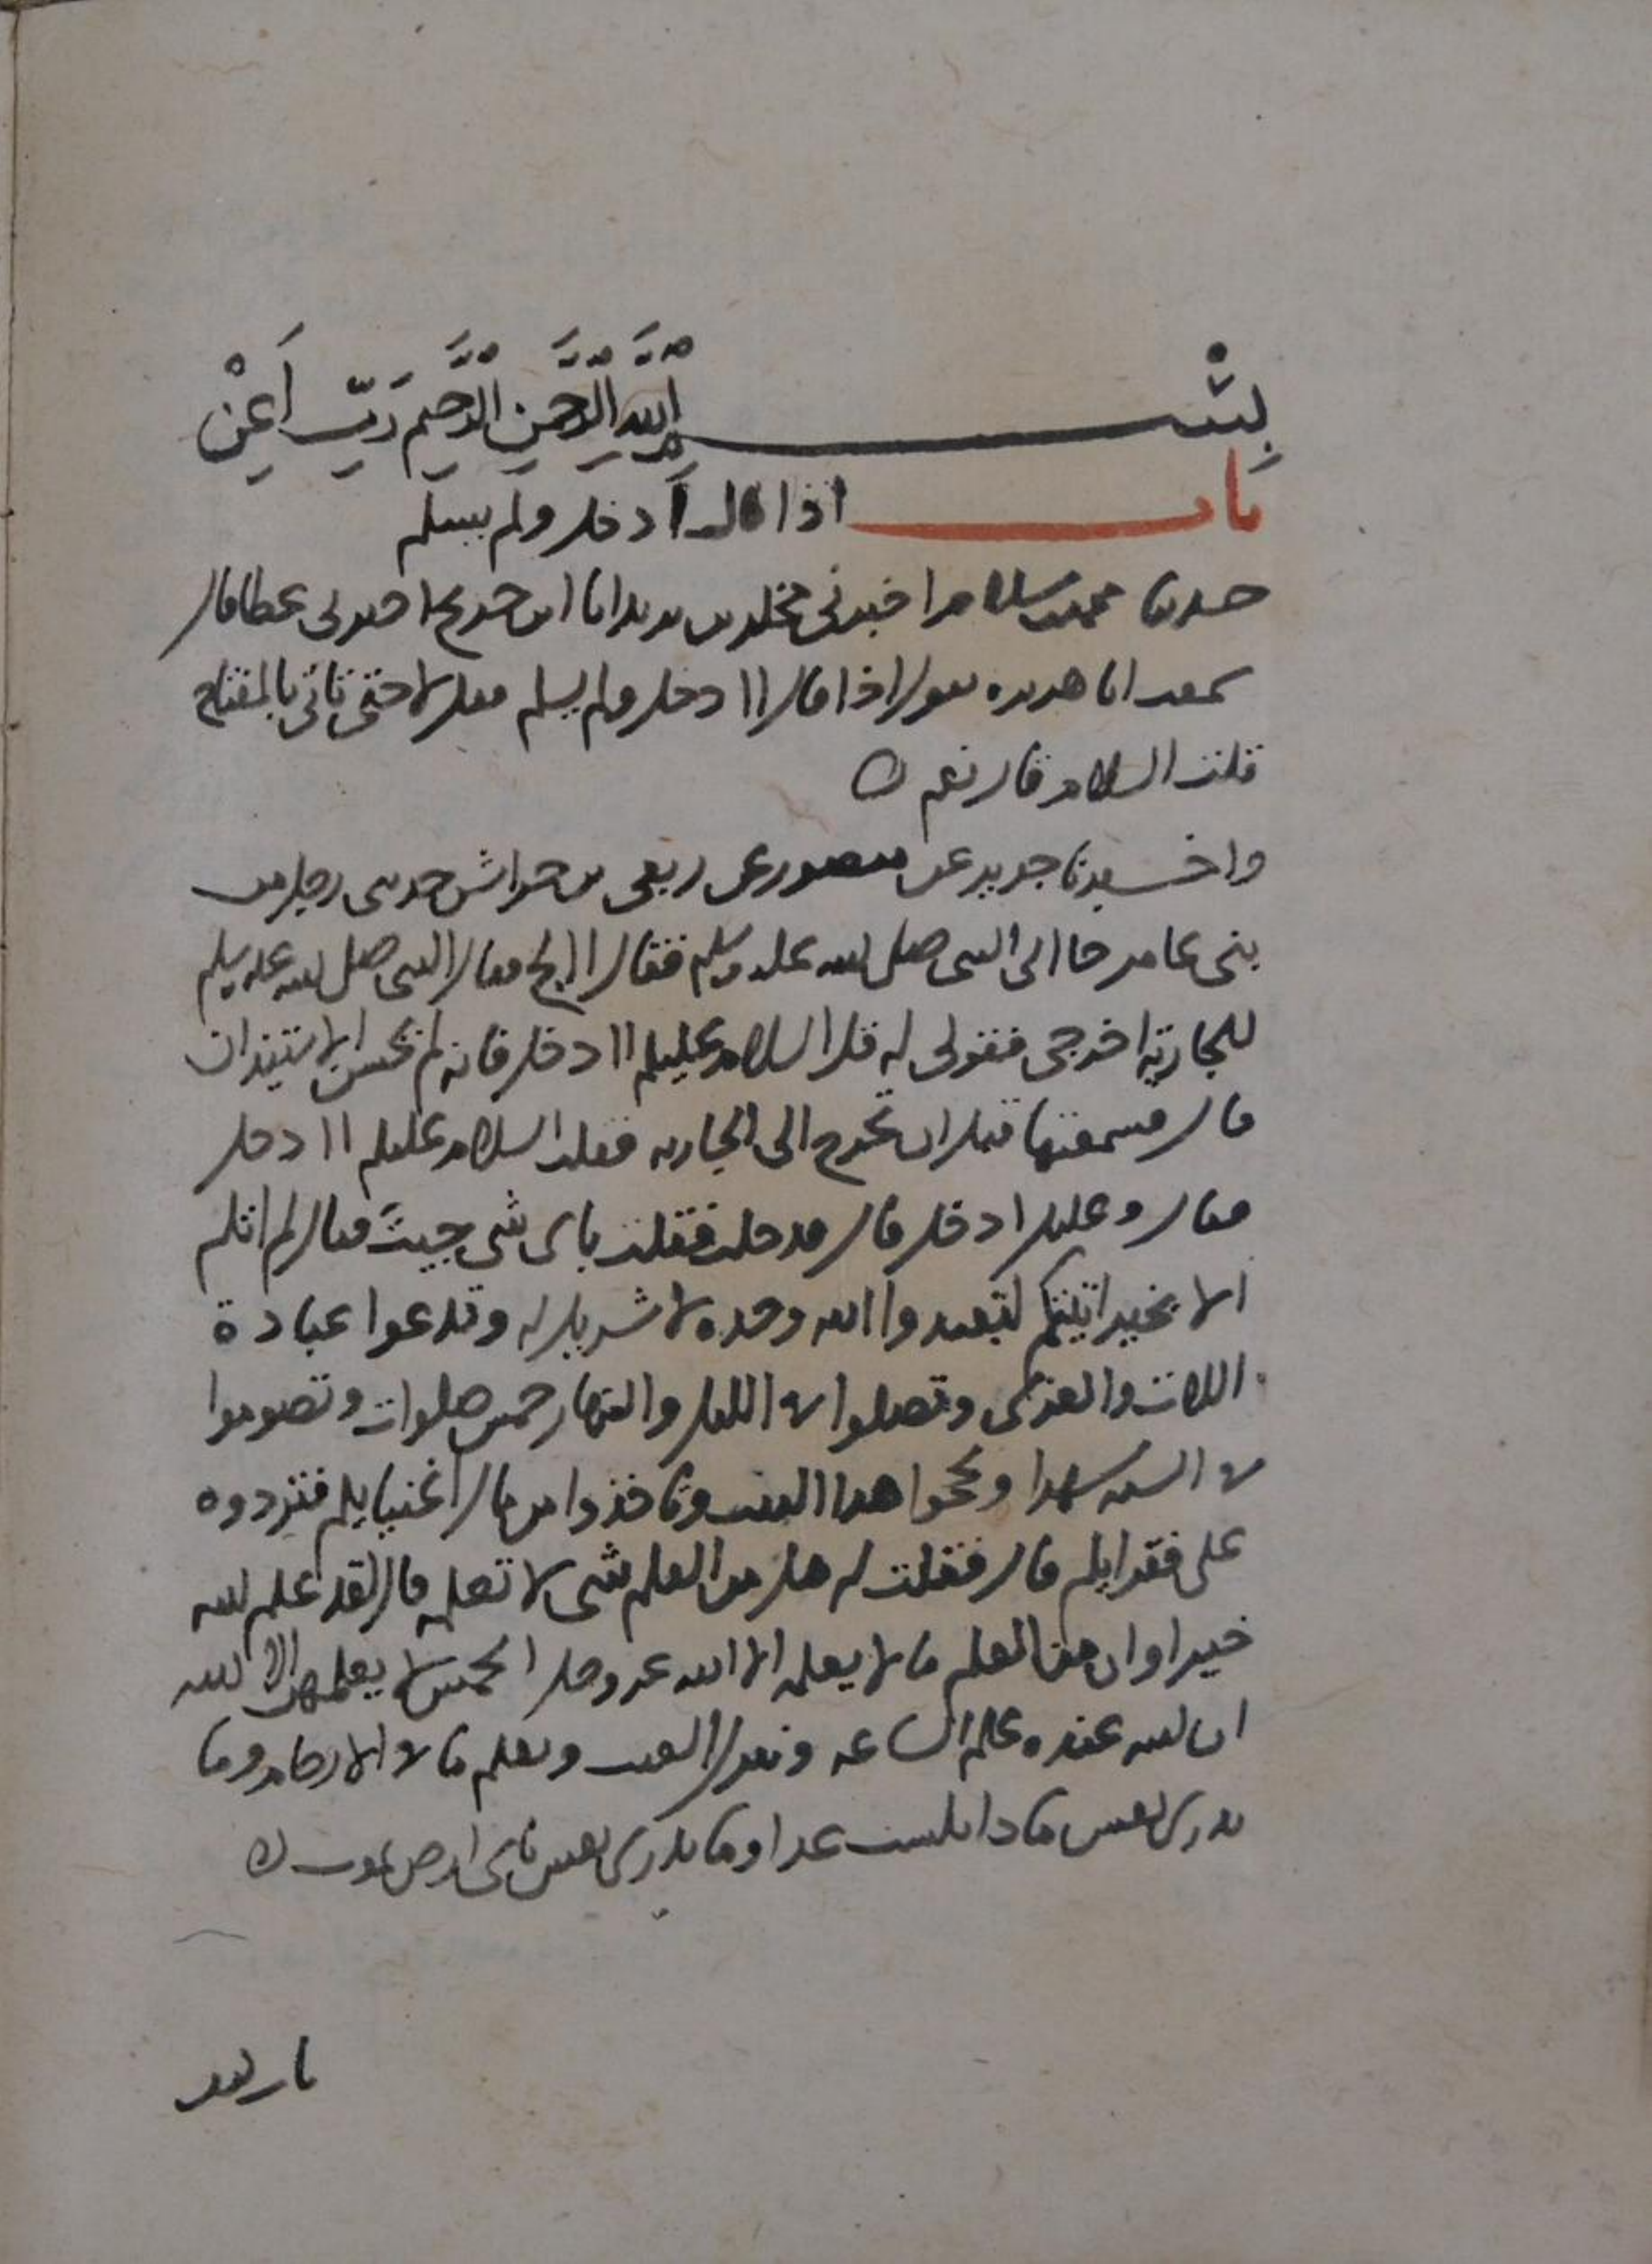 بسم الله الرحمن الرحيم رب أعن
باب اذا قال أادخل ولم يسلم
حدثنا محمد بن سلام اخبرني مخلد بن يزيد انا ابن جريج اخبرني عطا قال
سمعت ابا هريره يقول اذا قال اادخل ولم يسلم فقل لا حتى تاتي بالمفتاح
قلت السلام قال نعم ه
واخبرنا جرير عن منصور عن ربعي بن حراش حدثني رجل من
بني عامر جا الى النبي صلى الله عليه وسلم فقال االج فقال النبي صلى الله عليه وسلم
للجارية اخرجي فقولي له قل السلام عليكم اادخل فانه لم يحسن الاستيذان
قال فسمعتها قبل ان تخرج الى الجاريه فقلت السلام عليكم اادخل
فقال وعليك ادخل قال فدخلت فقلت باي شي جيت فقال لم اتكم
الا بخير اتيتكم لتعبدوا الله وحده لا شريك له وتدعوا عبادة
اللات والعزى وتصلوا في الليل والنهار خمس صلوات وتصوموا
في السنه شهرا وتحجوا هذا البيت وتاخذوا من مال اغنيايكم فتردوه
على فقرايكم قال فقلت له هل من العلم شي لا تعلمه قال لقد علم الله
خيرا وان من العلم ما لا يعلمه الا الله عز وجل الخمس لا يعلمهن الا الله
ان الله عنده علم الساعه وينزل الغيث ويعلم ما في الارحام وما
تدري نفس ماذا تكسب غدا وما تدري نفس باي ارض تموت ه